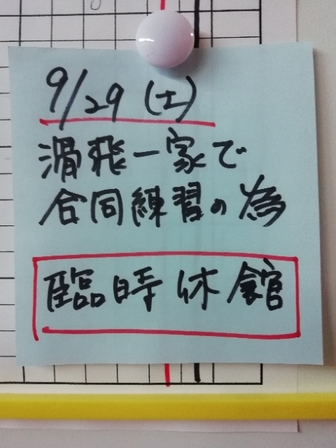 9/29 (土)
滑飛一家で
合同練習の為
臨時休館